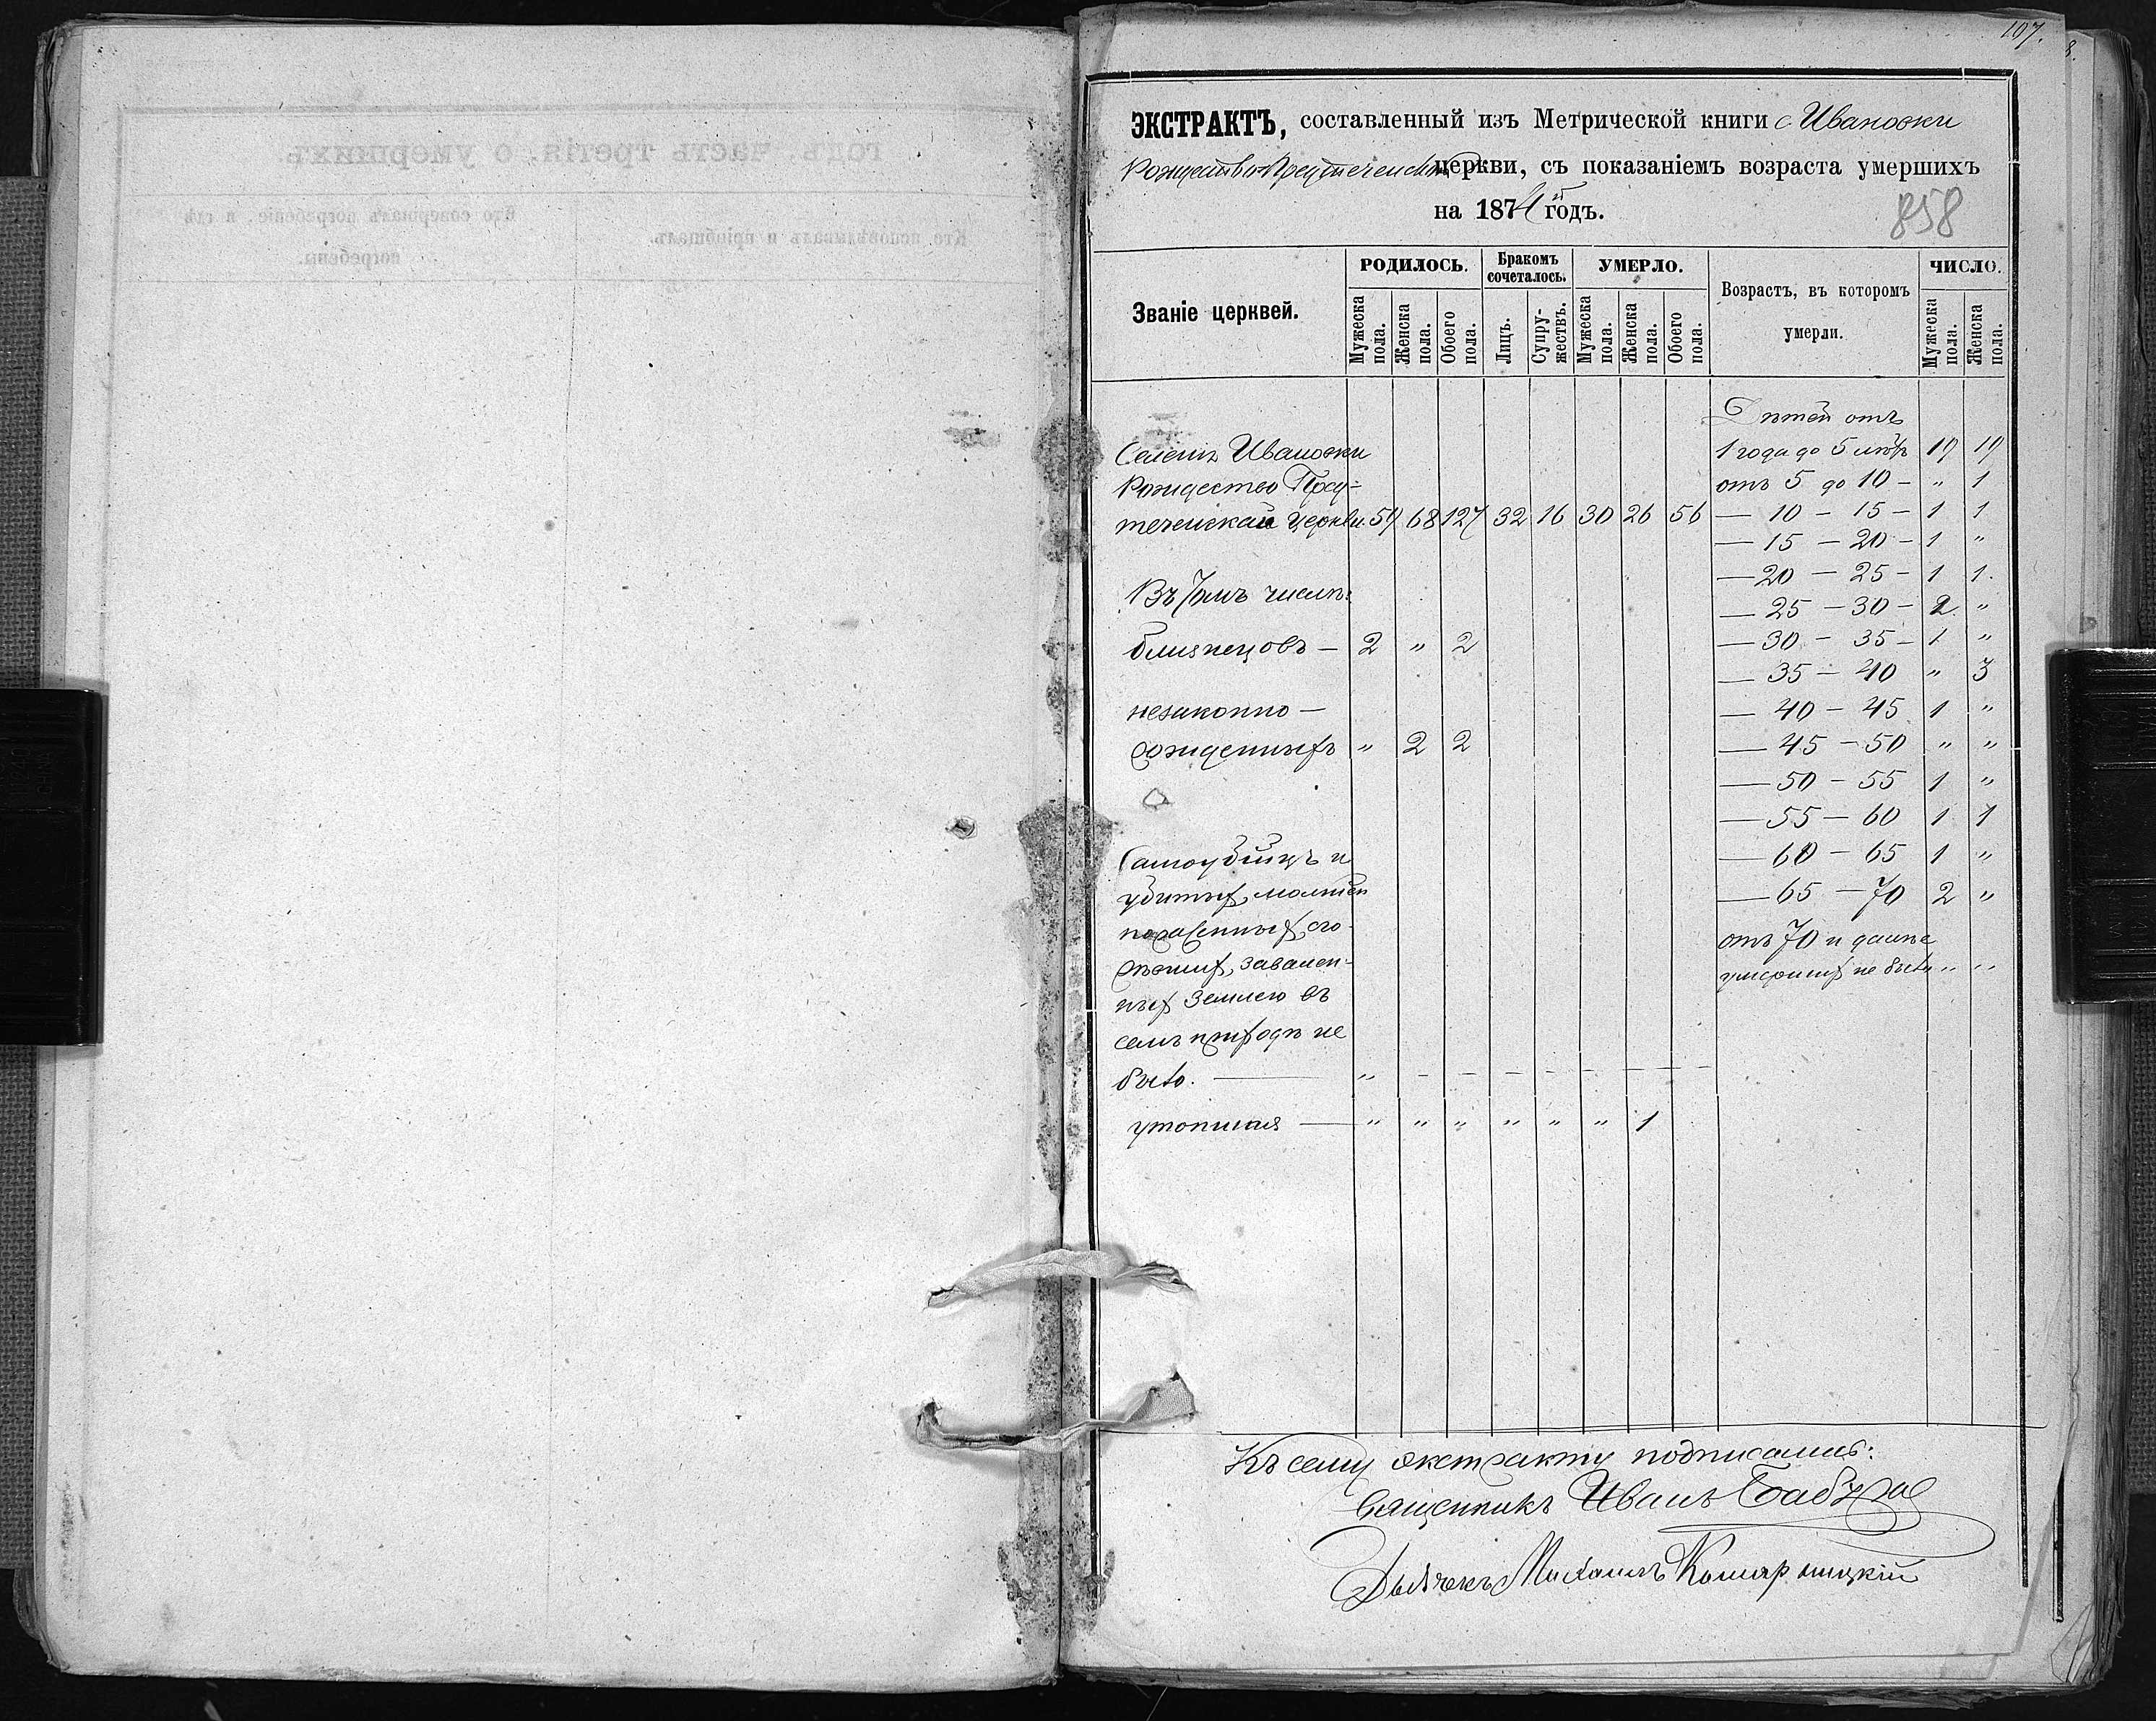 107.
8.
ЭКСТРАКТЪ, составленный изъ Метрической книги с. Ивановки
Рождество Предтеченской церкви, съ показаніемъ возраста умершихъ
на 1874й годъ.
858
Званіе церквей.
РОДИЛОСЬ.
Бракомъ сочеталось.
УМЕРЛО.
Возрастъ, въ которомъ умерли.
ЧИСЛО.
Мужеска пола.
Женска пола.
Обоего пола.
Лицъ.
Супружествъ.
Мужеска пола.
Женска пола.
Обоего пола.
Мужеска пола.
Женска пола.
Селенія Ивановки
Рождество Пред-
теченской церкви. 59 68 127 32 16 30 26 56
Въ томъ числѣ:
близнецовъ — 2 „ 2
незаконно —
рожденныхъ „ 2 2
Самоубійцъ и
убитыхъ, молніей
сго-
рѣвшихъ, завален-
ныхъ землею въ
семъ приходѣ не
было. — „ - - - - - - -
утопшая — „ „ „ „ „ „ 1
Дѣтей отъ
1 года до 5 лѣтъ 19 19
отъ 5 до 10 — „ 1
— 10 — 15 — 1 1
— 15 — 20 — 1 „
— 20 — 25 — 1 1.
— 25 — 30 — 2 „
— 30 — 35 — 1 „
— 35 — 40 „ 3
— 40 — 45 1 „
— 45 — 50 „ „
— 50 — 55 1 „
— 55 — 60 1 1
— 60 — 65 1 „
— 65 — 70 2 „
отъ 70 и далѣе
умершихъ не было „ „
Къ сему экстракту подписались:
Священникъ Иванъ
Дьячекъ Михаилъ Комарницкій
годъ, часть третія, о умершихъ.
Кто исповѣдывалъ и пріобщалъ.
Кто совершалъ погребеніе, и гдѣ
погребены.